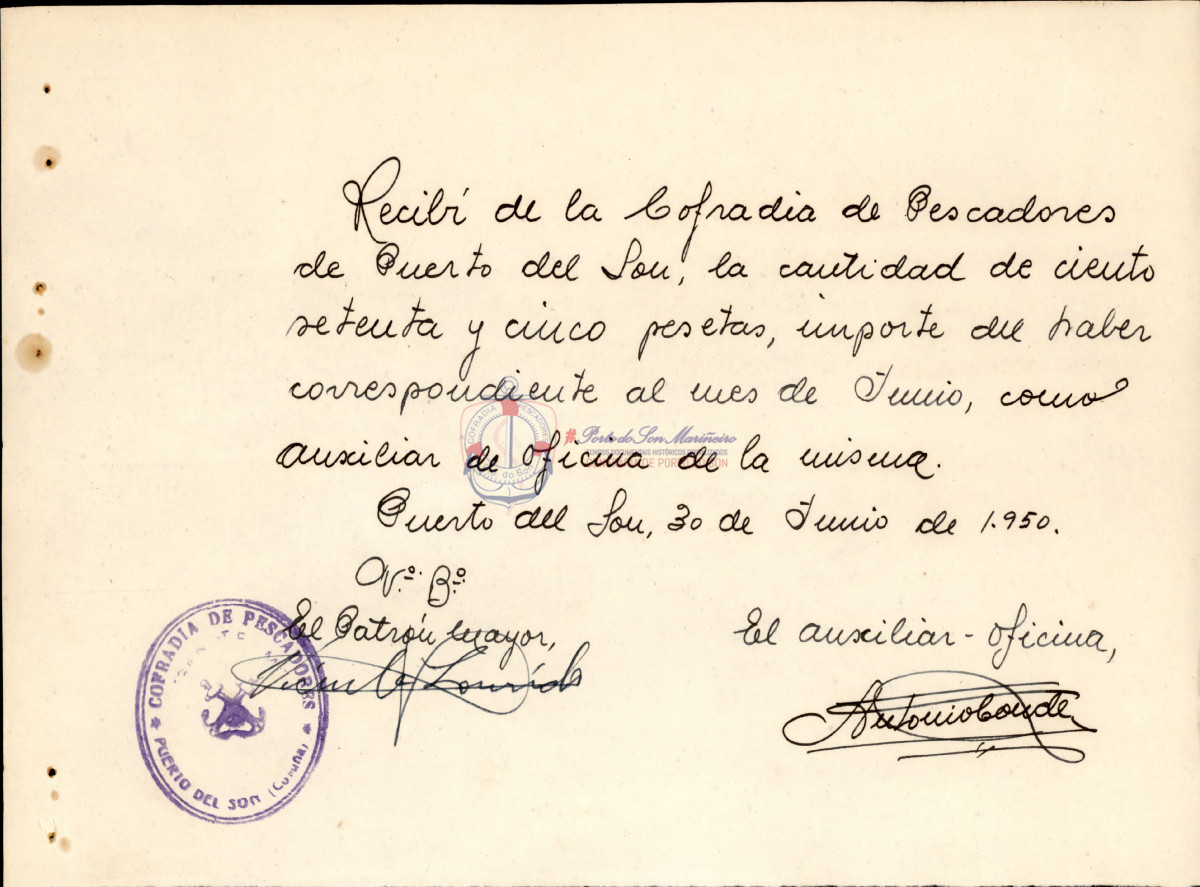 Recibí de la Cofradia de Pescadores
de Puerto del Son, la cantidad de ciento
setenta y cinco pesetas, importe del haber
correspondiente al mes de Junio, como
auxiliar de oficina de la misma.
Puerto del Son, 30 de Junio de 1.950.
Vº. Bº.
El Patrón mayor,
El auxiliar-oficina,
Antonio Conde
COFRADIA DE PESCADORES
PUERTO DEL SON (Coruña)
COFRADIA PESCADORES
do Son
#Porto do Son Mariñeiro
FONDOS DOCUMENTAIS HISTÓRICOS
DE PORTO DO SON